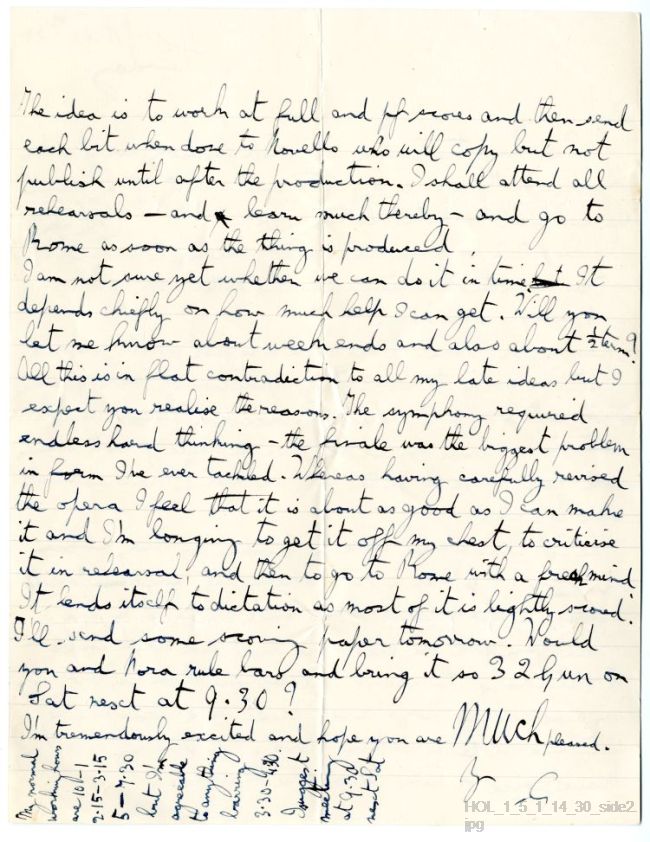 The idea is to work at full and pf scores and then send
each bit when done to Novello who will copy but not
publish until after the production. I shall attend all
rehearsals – and learn much thereby – and go to
Rome as soon as the thing is produced.
I am not sure yet whether we can do it in time but It
depends chiefly on how much help I can get. Will you
let me know about week ends and also about ½ term?
All this is in flat contradiction to all my late ideas but I
expect you realise the reasons. The symphony required
endless hard thinking – the finale was the biggest problem
in form I've ever tackled. Whereas having carefully revised
the opera I feel that it is about as good as I can make
it and I'm longing to get it off my chest, to criticise
it in rehearsal, and then to go to Rome with a fresh mind.
It lends itself to dictation as most of it is lightly scored.
I'll send some scoring paper tomorrow. Would
you and Nora rule bars and bring it to 32 Gun on
Sat next at 9.30?
I'm tremendously excited and hope you are MUCH pleased.
G
My normal
working hours
are 10-1
2.15-3.15
5-7.30
but I'm
agreeable
to anything
barring
3.30-4.30.
I suggest
meeting
at 9.30
next Sat
HOL_1_5_1_14_30_side2
jpg